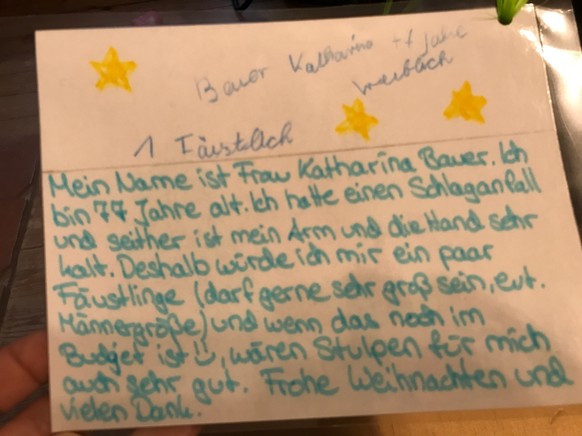 Bauer Katharina 77 Jahre
1 Fäustlich
Mein Name ist Frau Katharina Bauer. Ich
bin 77 Jahre alt. Ich hatte einen Schlaganfall
und seither ist mein Arm und die Hand sehr
kalt. Deshalb würde ich mir ein paar
Fäustlinge (darf gerne sehr groß sein, evt.
Männergröße) und wenn das noch im
Budget ist ü, wären Stulpen für mich
auch sehr gut. Frohe Weihnachten und
vielen Dank.